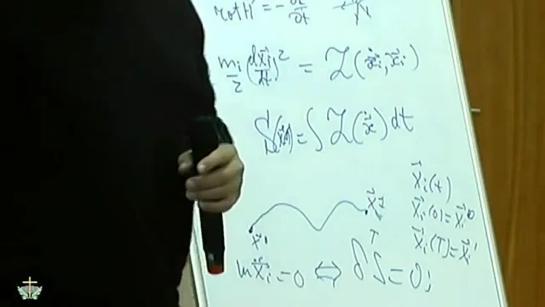 rot H = - ∂ε/∂t
m_i/2 (dx⃗_i/dt)² = ℒ(ẋ⃗_i, x⃗_i)
S(x(t)) = ∫ ℒ(ẋ⃗) dt
x⃗_i(t)
x⃗_i(0) = x⃗_i⁰
x⃗_i(T) = x⃗_i¹
m ẍ⃗_i = 0 ⇔ δS = 0;